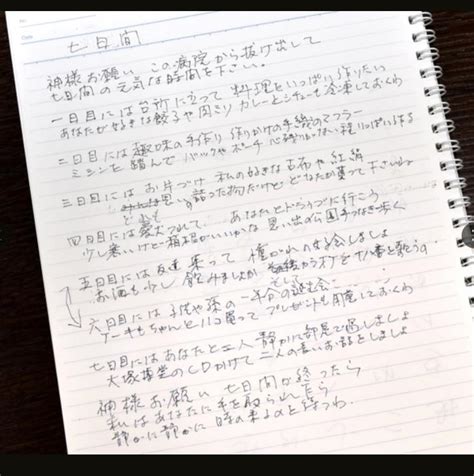 七日間
神様お願い この病院から抜け出して
七日間の元気な時間を下さい。
一日目には台所に立って 料理をいっぱい作りたい
あなたが好きな餃子や肉きり カレーとシチューも冷凍しておくわ
二日目には趣味の手作り 作りかけの手織のマフラー
ミシンを踏んで バッグやポーチ 心残りがない程いっぱい作る
三日目には お片づけ 私の好きな古布や紅絹
どれも 思いの詰った物だけど どなたか貰って下さいね
四日目には愛犬つれて あなたとドライブに行こう
少し寒いけど箱根がいいかな 思い出の公園手つなぎ歩く
五日目には 友達
お酒も少し 飲みましょか そしてカラオケで十八番を歌うの
六日目には子供や孫の一年分の誕生会
ケーキもちゃんと11コ買って プレゼントも用意しておくわ
七日目にはあなたと二人 静かに部屋で過ごしましょ
大塚博堂のCDかけて 二人の長いお話をしましょ
神様お願い 七日間が終ったら
私はあなたに手を取られながら
静かに静かに 時の来るのを待つわ